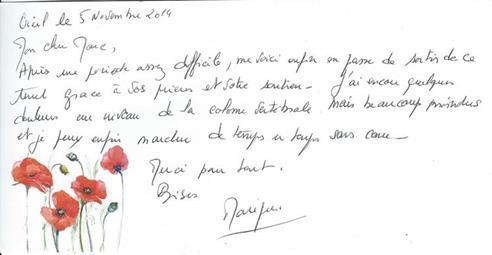 le 5 Novembre 2014
Mon cher Marc,
Après une période assez difficile, me voici enfin en passe de sortir de ce
tunnel grace à vos prières et votre soutien - j'ai encore quelques
douleurs au niveau de la colonne vertébrale mais beaucoup moindres
et je peux enfin marcher de temps en temps sans canne -
Merci pour tout.
Bises